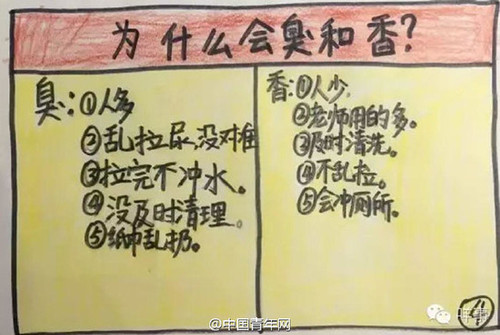 为什么会臭和香?
臭:①人多
②乱拉尿,没对准
③拉完不冲水。
④没及时清理。
⑤纸巾乱扔。
香:①人少
②老师用的多。
③及时清洗。
④不乱拉。
⑤会冲厕所。
@中国青年网